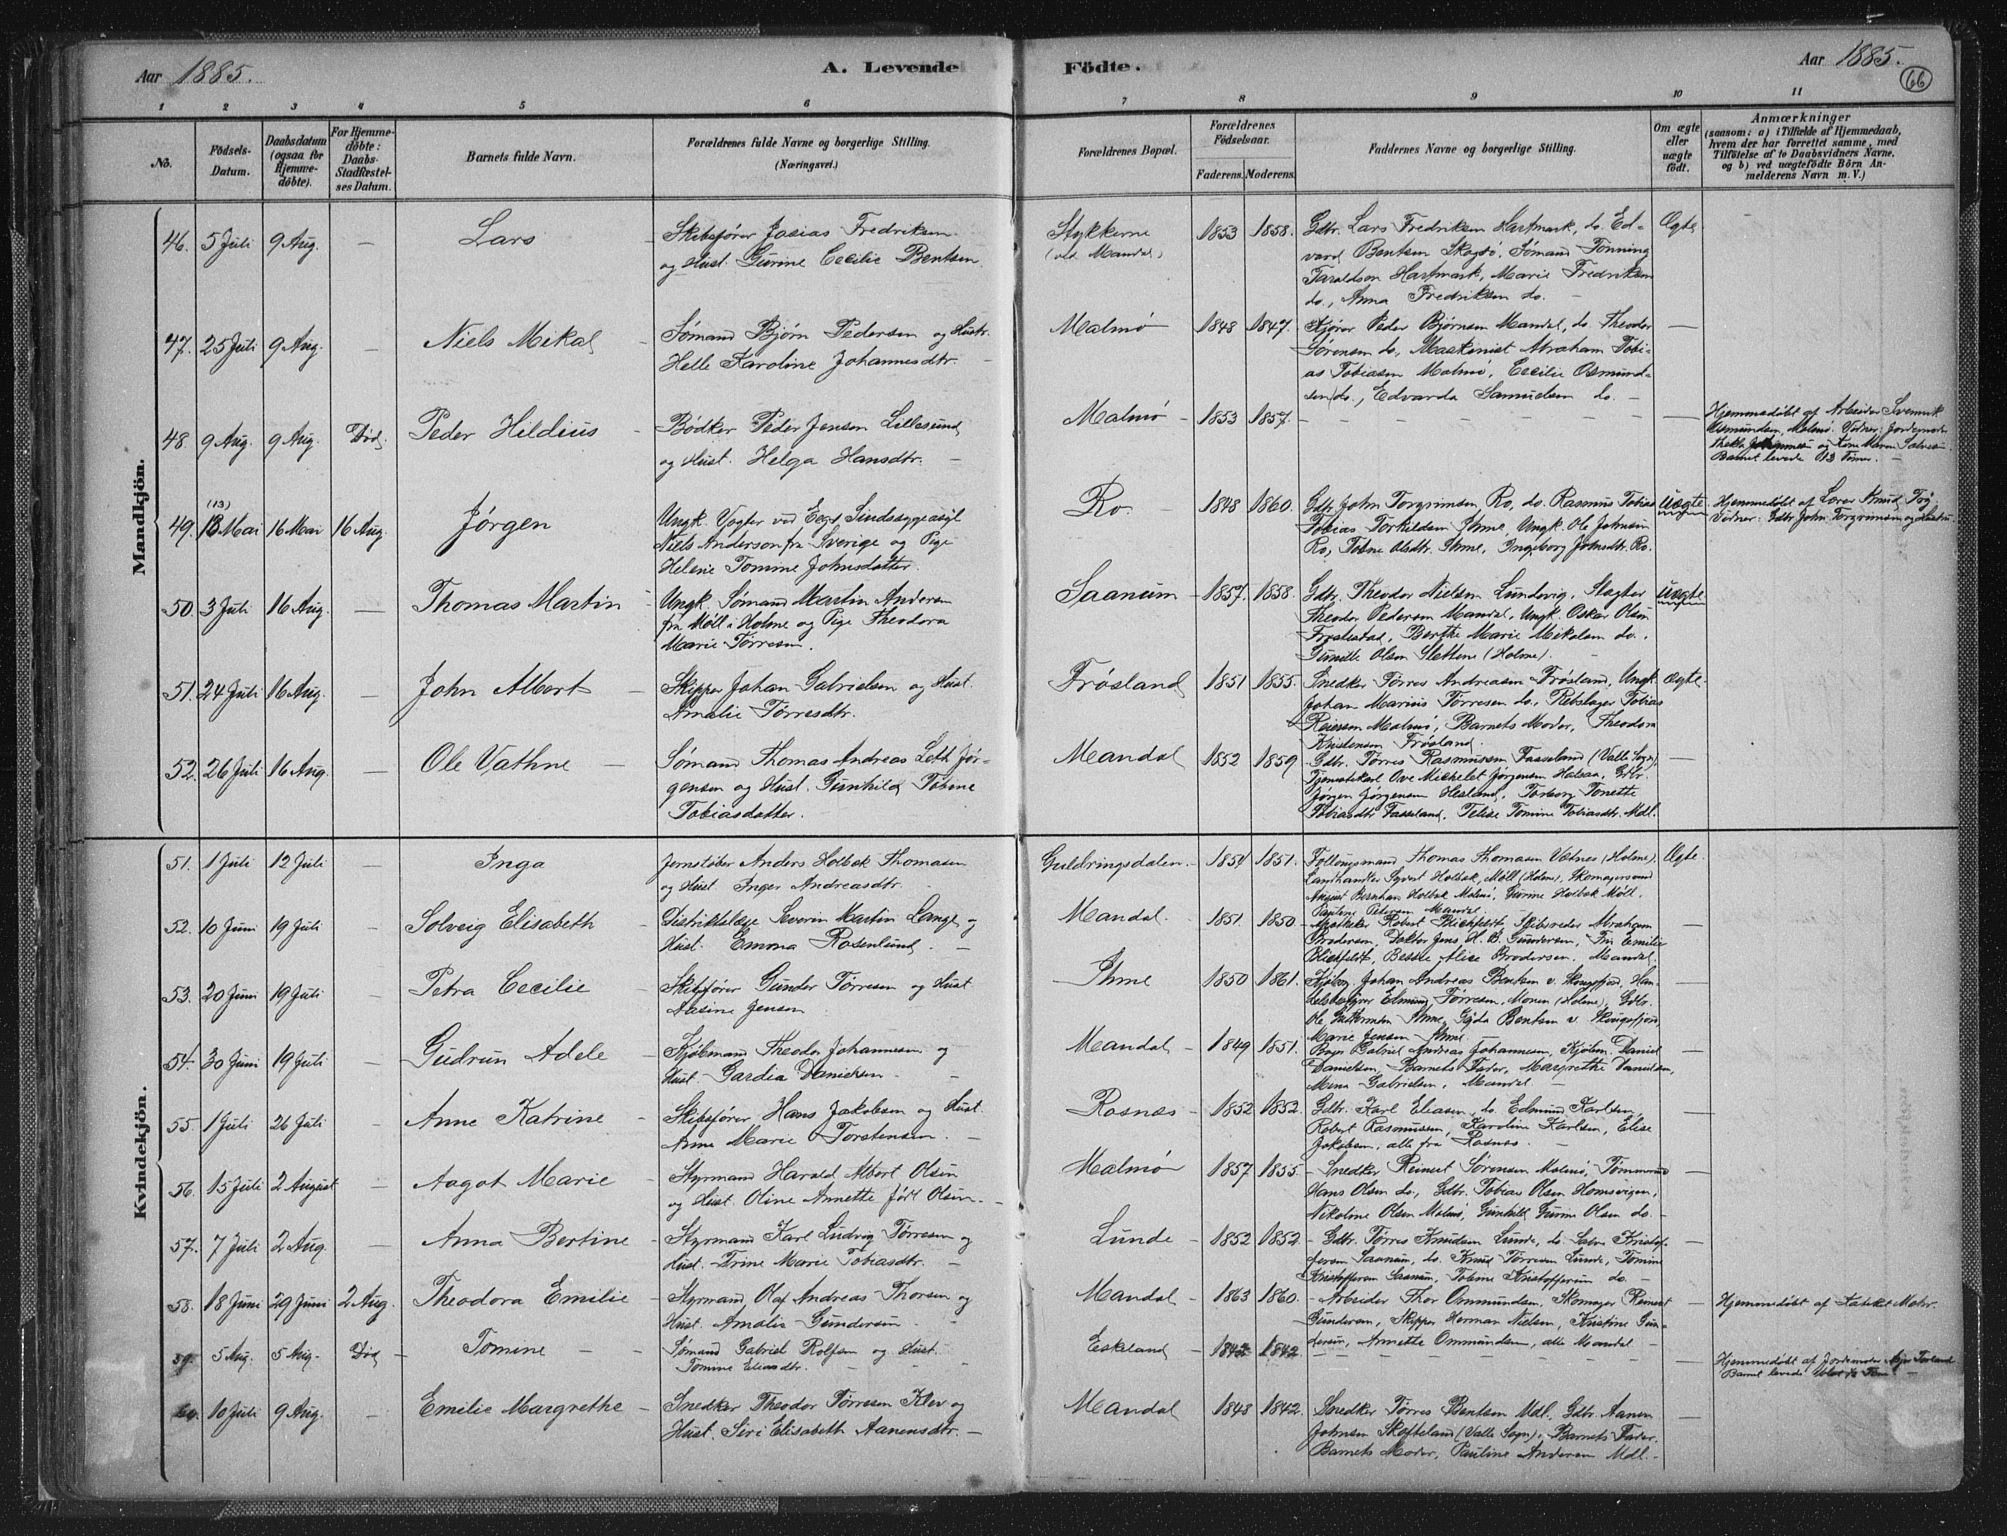 Aar 1885.
A. Levende Födte.
Aar 1885.
66
1 2 3 4 5 6 7 8 9 10 11
No.
Födsels-Datum.
Daabsdatum (ogsaa for Hjemmedöbte).
For Hjemmedöbte: Daabs-Stadfæstelses Datum.
Barnets fulde Navn.
Forældrenes fulde Navne og borgerlige Stilling.
(Næringsvei.)
Forældrenes Bopæl.
Forældrenes Födselsaar.
Faderens. Moderens.
Faddernes Navne og borgerlige Stilling.
Om ægte eller uægte födt.
Anmærkninger
(saasom: a) i Tilfælde af Hjemmedaab, hvem der har forrettet samme, med Tilföielse af to Daabsvidners Navne, og b) ved uægtefödte Börn Anmelderens Navn m. V.)
Mandkjön.
46. 5 Juli 9 Aug. — Lars — Skibsfører Josias Fredriksen
og Hust. Gurine Cecilie Bentsen.
Stykkerne 1853 1858. Gdbr. Lars Fredriksen Hartmark, do. Ed-
vard Bentsen Skogsø, Sømand Tønning
Taraldsen Hartmark, Marie Fredriksen
do., Anna Fredriksen do. —
Ægte
47. 25 Juli 9 Aug. — Niels Mikal — Sømand Bjørn Pedersen og Hustr.
Helle Karoline Johannesdtr. —
Malmø 1848 1847. Peder Bjørnsen Mandal, do. Theodor
Sørensen do., Maskinist Abraham Tobi-
as Tobiasen Malmø, Cecilie Osmund-
sen do., Edvarda Samuelsen do. —
48. 9 Aug. 9 Aug. Død. Peder Hildius — Bødker Peder Jensen Lillesund
og Hust. Helga Hansdtr. —
Malmø — 1853 1857. — Hjemmedøbt af Arbeider
Osmundsen, Malmø.
Barnet levede
49. (13) 18 Mai 16 Mai 16 Aug. Jørgen — Ungk. Vogter ved Eegs Sindssygeasyl
Niels Anderson fra Sverige og Pige
Helene Tomine Johnsdatter.
Ro. — 1848 1860. Gdbr. John Torgrimsen, Ro, do. Rasmus Tobias
Tobias Torkildsen Ihme, Ungk. Ole Johnsen
Ro, Tobine Olsdtr. Ihme, Ingeborg Johnsdtr. Ro.
Uægte Hjemmedøbt af
Vidner: Gdbr. John Torgrimsen og Hustru
50. 3 Juli 16 Aug. — Thomas Martin — Ungk. Sømand Martin Andersen
fra Møll i Holme og Pige Theodora
Marie Tørresen.
Saanum — 1857. 1858. Gdbr. Theodor Nielsen Lundevig, Slagter
Theodor Pedersen Mandal, Ungk. Oskar Olsen
Berthe Marie Mikalsen do.
Gunille Olsen Slettene (Holme).
Uægte
51. 24 Juli 16 Aug. — John Albert — Skipper Johan Gabrielsen og Hust.
Amalie Tørresdtr.
Frøsland 1851 1855. Snedker Tørres Andreasen Frøsland, Ungk.
Johan Marius Tørresen do., Rebslager Tobias
Reiersen Malmø, Barnets Moder, Theodora
Kristensen Frøsland.
Ægte
52. 26 Juli 16 Aug. — Ole Vathne — Sømand Thomas Andreas Leth Jør-
gensen og Hust. Gunhild Tobine
Tobiasdatter.
Mandal 1852 1859 — Gdbr. Tørres Rasmussen Fasseland (Valle Sogn)
Tjenestekarl Ove Michelet Jørgensen Halsaa, Gdbr.
Jørgen Jørgensen Hesland, Torborg Tonette
Tobiasdtr. Fasseland, Telise Tomine Tobiasdtr. Mdl.
Kvindekjön.
51. 1 Juli 12 Juli — Inga — Jernstøber Anders Holbek Thomasen
og Hust. Inger Andreasdtr. —
Guldringsdalen. — 1854 1851. Thomas Thomasen Vætnes (Holme),
Landhandler Syvert Holbæk, Møll (Holme),
August Bernhan Holbæk Malmø, Gurine Holbæk Møll.
Pauline Petersen Mandal.
Ægte.
52. 10 Juni 19 Juli — Solveig Elisabeth — Distriktslæge Severin Martin Lange og
Hust. Emma Rosenlund. —
Mandal. — 1851. 1850. — Apotheker Robert Blickfeldt, Skibsreder Abraham
Brodersen, Doktor Jens H. B. Gundersen, Fru Emilie
Blickfeldt, Besse Alise Brodersen. Mandal. —
53. 20 Juni 19 Juli — Petra Cecilie — Skibsfører Gunder Tørresen og Hust.
Jensen
Ihme — 1850 1861. Johan Andreas Bentsen v. Skogsfjord, Han-
delsbestyrer Edmund Tørresen, Monen (Holme), Gdbr.
Ole Guttormsen Ihme, Gyda Bentsen v. Skogsfjord,
Marie Jensen Ihme.
54. 30 Juni 19 Juli — Gudrun Adele — Kjøbmand Theodor Johannesen og
Hust. Gardia Danielsen. —
Mandal — 1849 1851. Gabriel Andreas Johannesen, Kjøbm. Daniel
Danielsen, Barnets Fader, Margrethe Danielsen,
Mina Gabrielsen, Mandal —
55. 1 Juli 26 Juli — Anne Katrine — Skibsfører Hans Jakobsen og Hust.
Anne Marie Torstensen. —
Rosnæs — 1852 1852. Gdbr. Karl Eliasen, do. Edmund Karlsen,
Robert Rasmussen, Karoline Karlsen, Elise
Jakobsen, alle fra Rosnæs. —
56. 15 Juli 2 August — Aagot Marie — Styrmand Harald Albert Olsen
og Hust. Oline Annette født Olsen. —
Malmø — 1857 1855. — Snedker Reinert Sørensen Malmø, Tømmermd.
Hans Olsen do., Gdbr. Tobias Olsen Homsvigen,
Nikoline Olsen Malmø, Gunhild Gurine Olsen do. —
57. 7 Juli 2 Aug. — Anna Bertine — Styrmand Karl Ludvig Tørresen og
Hust. Trine Marie Tobiasdtr. —
Lunde — 1852 1852. — Gdbr. Tørres Knudsen Lunde, do. Salve Kristof-
fersen Saanum, do. Knud Tørresen Lunde, Tomine
Kristoffersen Saanum, Tobine Kristoffersen do. —
58. 18 Juni 29 Juni 2 Aug. Theodora Emilie — Styrmand Olaf Andreas Thorsen og
Hust. Amalie Gundersen. —
Mandal — 1863 1860. — Arbeider Thor Ommundsen, Skomager Reinert
Gundersen, Skipper Herman Nielsen, Kristine Gun-
dersen, Annette Ommundsen, alle Mandal —
Hjemmedøbt af
59. 5 Aug. 5 Aug. Død — Tomine — Sømand Gabriel Rolfsen og Hust.
Tomine Eliasdtr. —
Eskeland — 1842 1842. — Hjemmedøbt af Jordemoder
Barnet levede
60. 10 Juli 9 Aug. — Emilie Margrethe — Snedker Theodor Tørresen Klev og
Hust. Siri Elisabeth Aanensdtr. —
Mandal 1848 1842. Snedker Tørres Bentsen Mdl. Gdbr. Aanen
Johnsen Skofteland (Valle Sogn), Barnets Fader,
Barnets Moder, Pauline Andersen Mdl. —